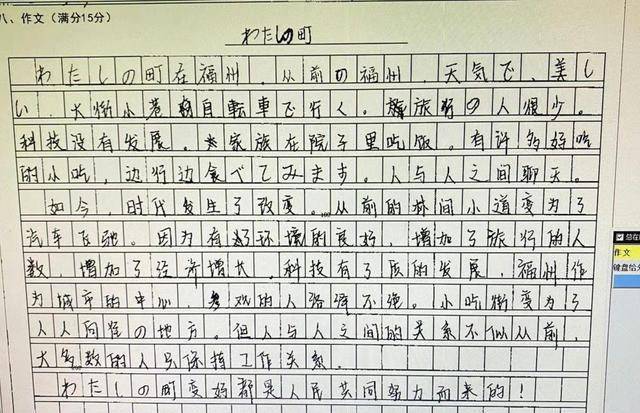 八、作文（满分15分）
わたしの町
わたしの町在福州。从前の福州，天気で，美し
い 大街小巷自転車で行く。旅行の人很少。
科技没有发展。家族在院子里吃饭。有许多好吃
的小吃，边行边食べてみます。人与人之间聊天。
如今，时代发生了改变。从前的林间小道变为了
汽车飞驰。因为有好环境的良好，增加了旅行的人
数，增加了经济增长。科技有了质的发展，福州作
为城市的中心，参观的人络绎不绝。小吃街变为了
人人向往の地方。但人与人之间的关系不似从前，
大多数的人只保持工作关系。
わたしの町变好都是人民共同努力而来的！
总在
作文
键盘给分